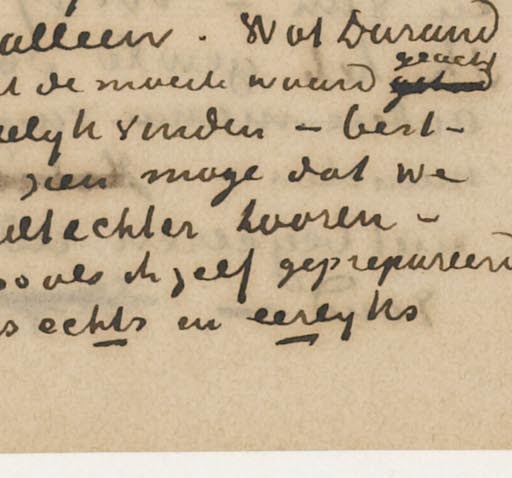 alleen. Wat Durand
t de moeite waard geacht
elyk vinden – best –
zien moge dat we
uet echter hooren –
oo als ik zelf geprepareerd
s echts en eerlyks